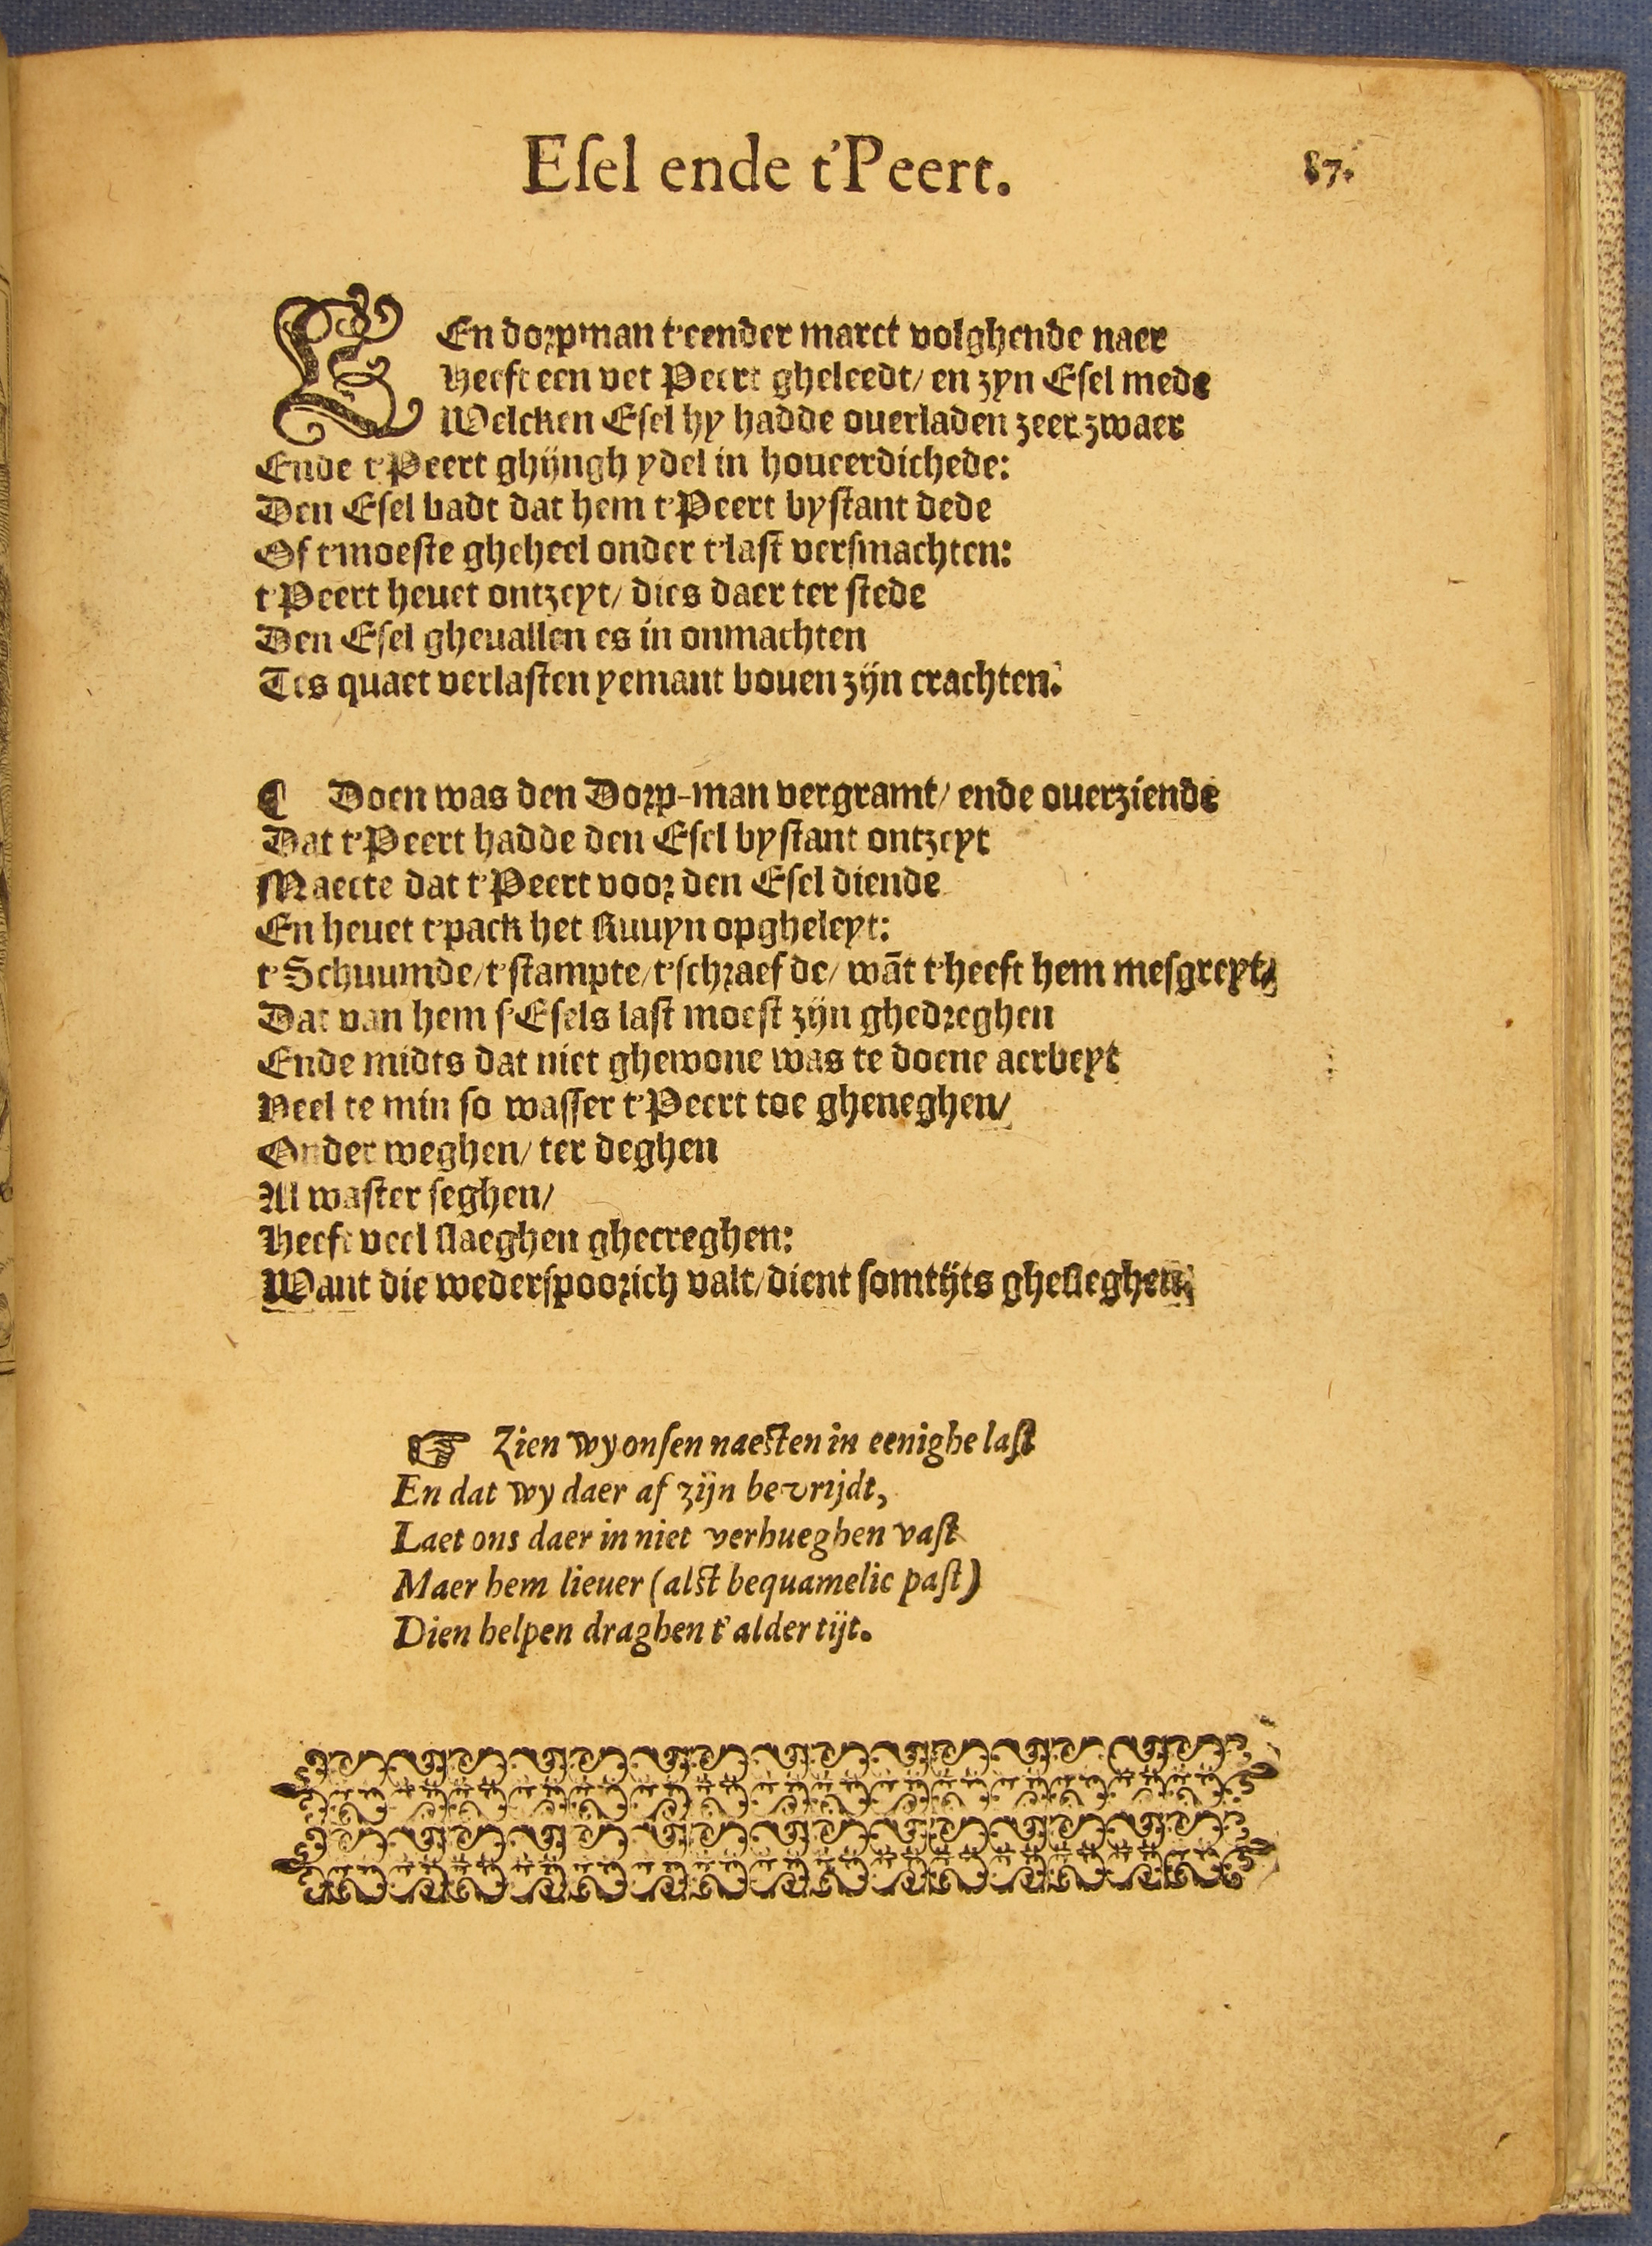 Eſel ende t'Peert.
87.
EEn dorpman t'eender marct volghende naer
Heeft een vet Peert gheleedt/ en zyn Eſel mede
Welcken Eſel hy hadde ouerladen zeer zwaer
Ende t'Peert ghijngh ydel in houeerdichede:
Den Eſel badt dat hem t'Peert byſtant dede
Of t'moeſte gheheel onder t'laſt verſmachten:
t'Peert heuet ontzeyt/ dies daer ter ſtede
Den Eſel gheuallen es in onmachten
Tes quaet verlaſten yemant bouen zijn crachten.
¶ Doen was den Dorp-man vergramt/ ende ouerziende
Dat t'Peert hadde den Eſel byſtant ontzeyt
Maecte dat t'Peert voor den Eſel diende
En heuet t'pack het Ruuyn opgheleyt:
t'Schuumde/ t'ſtampte/ t'ſchraefde/ wãt t'heeft hem meſgreyt/
Dat van hem ſ'Eſels laſt moeſt zijn ghedreghen
Ende midts dat niet ghewone was te doene aerbeyt
Veel te min ſo waſſer t'Peert toe gheneghen/
Onder weghen/ ter deghen
Al waſter ſeghen/
Heeft veel ſlaeghen ghecreghen:
Want die wederſpoorich valt/ dient ſomtijts gheſleghen.
☞ Zien wy onſen naeſten in eenighe laſt
En dat wy daer af zijn bevrijdt,
Laet ons daer in niet verhueghen vaſt
Maer hem lieuer (alſt bequamelic paſt)
Dien helpen draghen t'alder tijt.